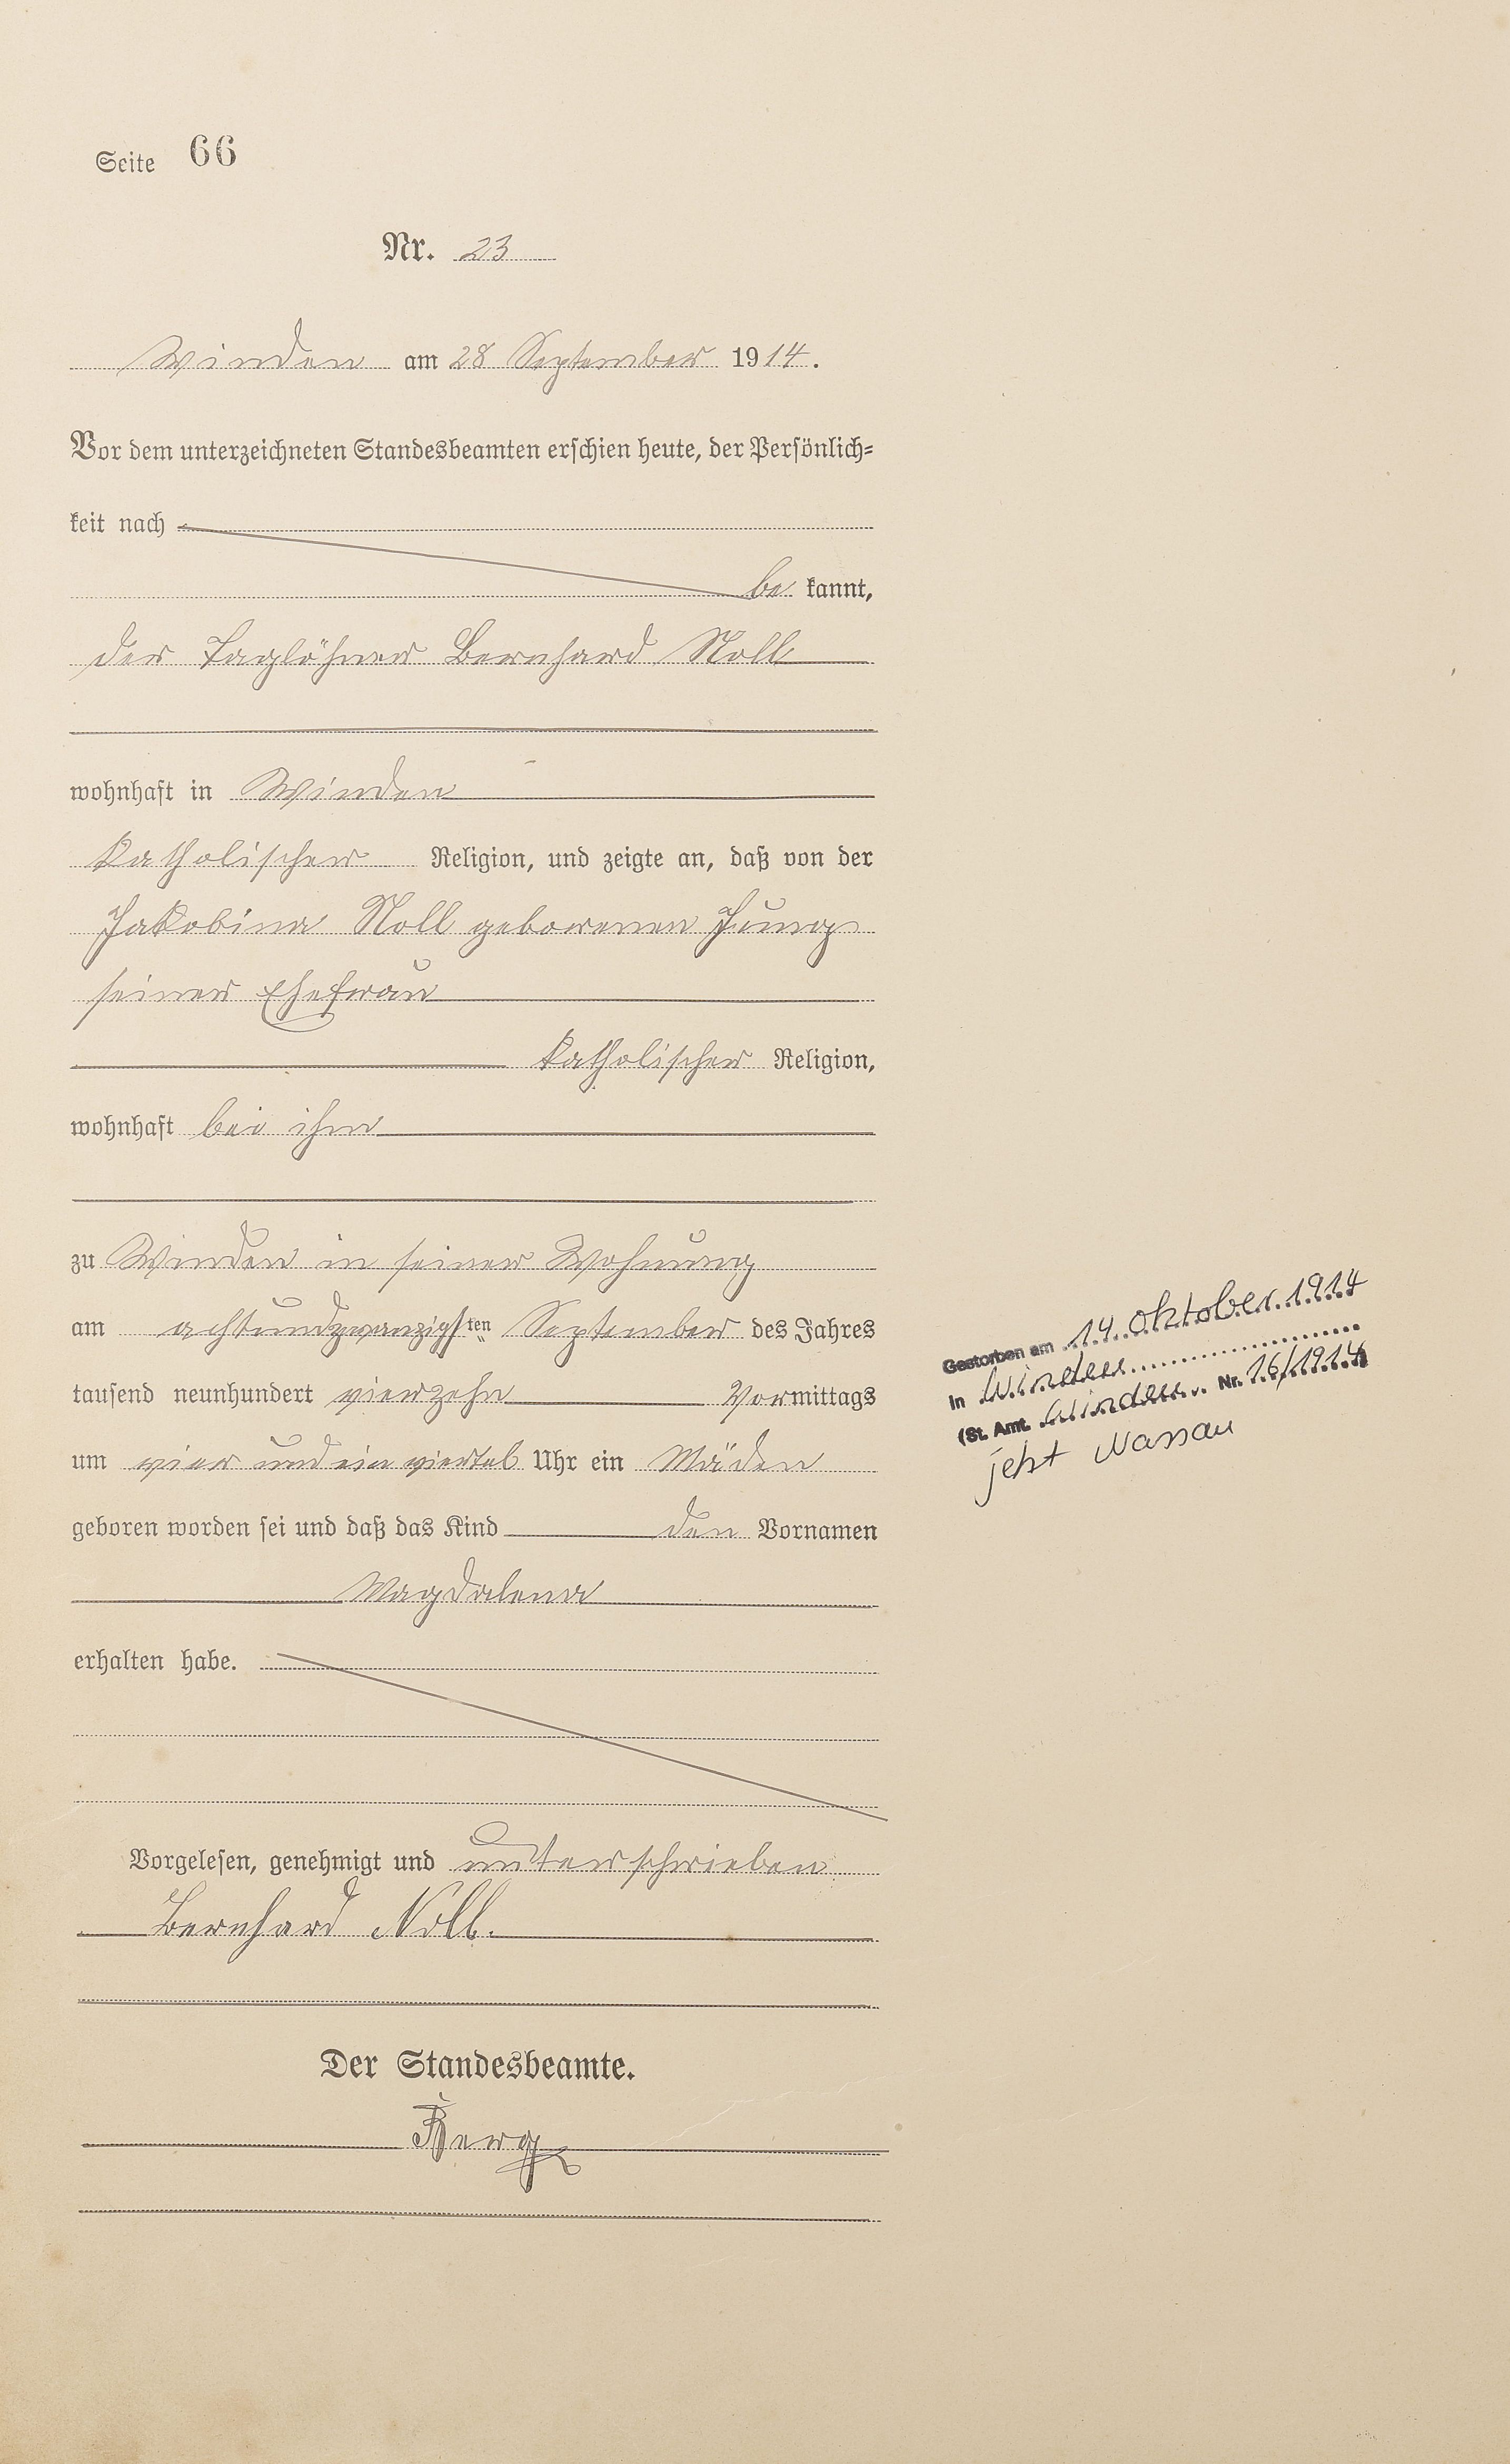 Seite 66
Nr. 23
Winden am 28 September 1914.
Vor dem unterzeichneten Standesbeamten erschien heute, der Persönlich=
keit nach
be kannt,
der Taglöhner Bernhard Noll
wohnhaft in Winden
katholischer Religion, und zeigte an, daß von der
Jakobina Noll geborenen Jung
seiner Ehefrau
katholischer Religion,
wohnhaft bei ihm
zu Winden in seiner Wohnung
am achtundzwanzigsten September des Jahres
tausend neunhundert vierzehn Vormittags
um vier und ein viertel Uhr ein Mäden
geboren worden sei und daß das Kind den Vornamen
Magdalena
erhalten habe.
Vorgelesen, genehmigt und unterschrieben
Bernhard Noll.
Der Standesbeamte.
Berg
Gestorben am 14. Oktober 1914
in Winden
(St. Amt. Winden Nr. 16/1914)
jetzt Nassau